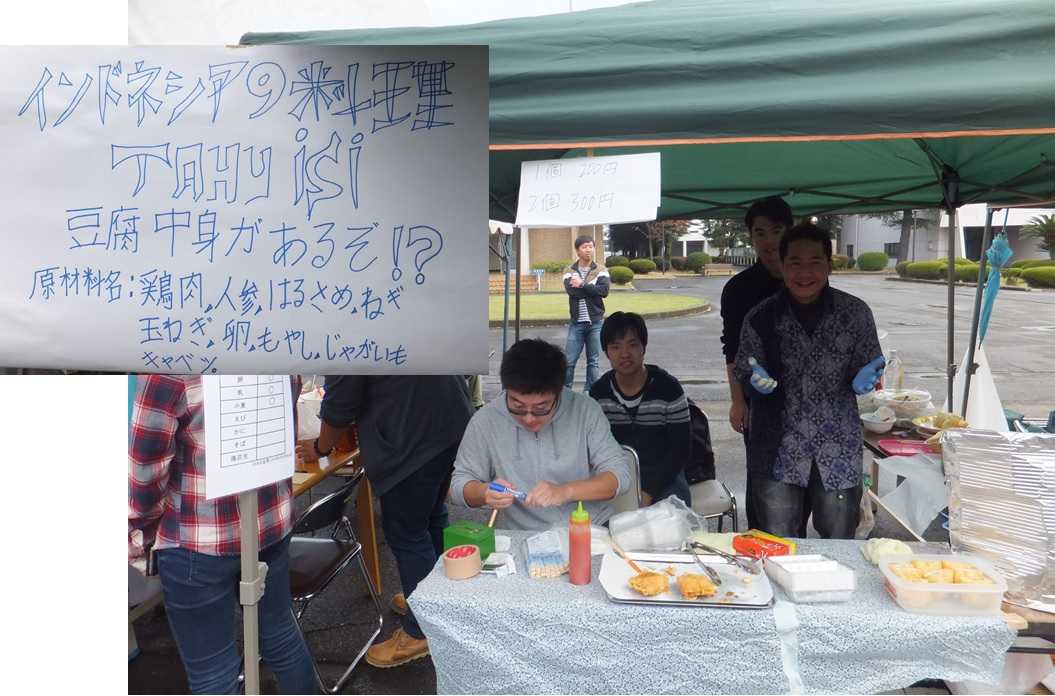 インドネシアの料理
TAHU iSi
豆腐 中身があるぞ!?
原材料名:鶏肉,人参,はるさめ,ねぎ
玉ねぎ,卵,もやし,じゃがいも
キャベツ。
1個 200円
2個 300円
卵 ○
乳 ○
小麦 ○
えび
かに
そば
落花生